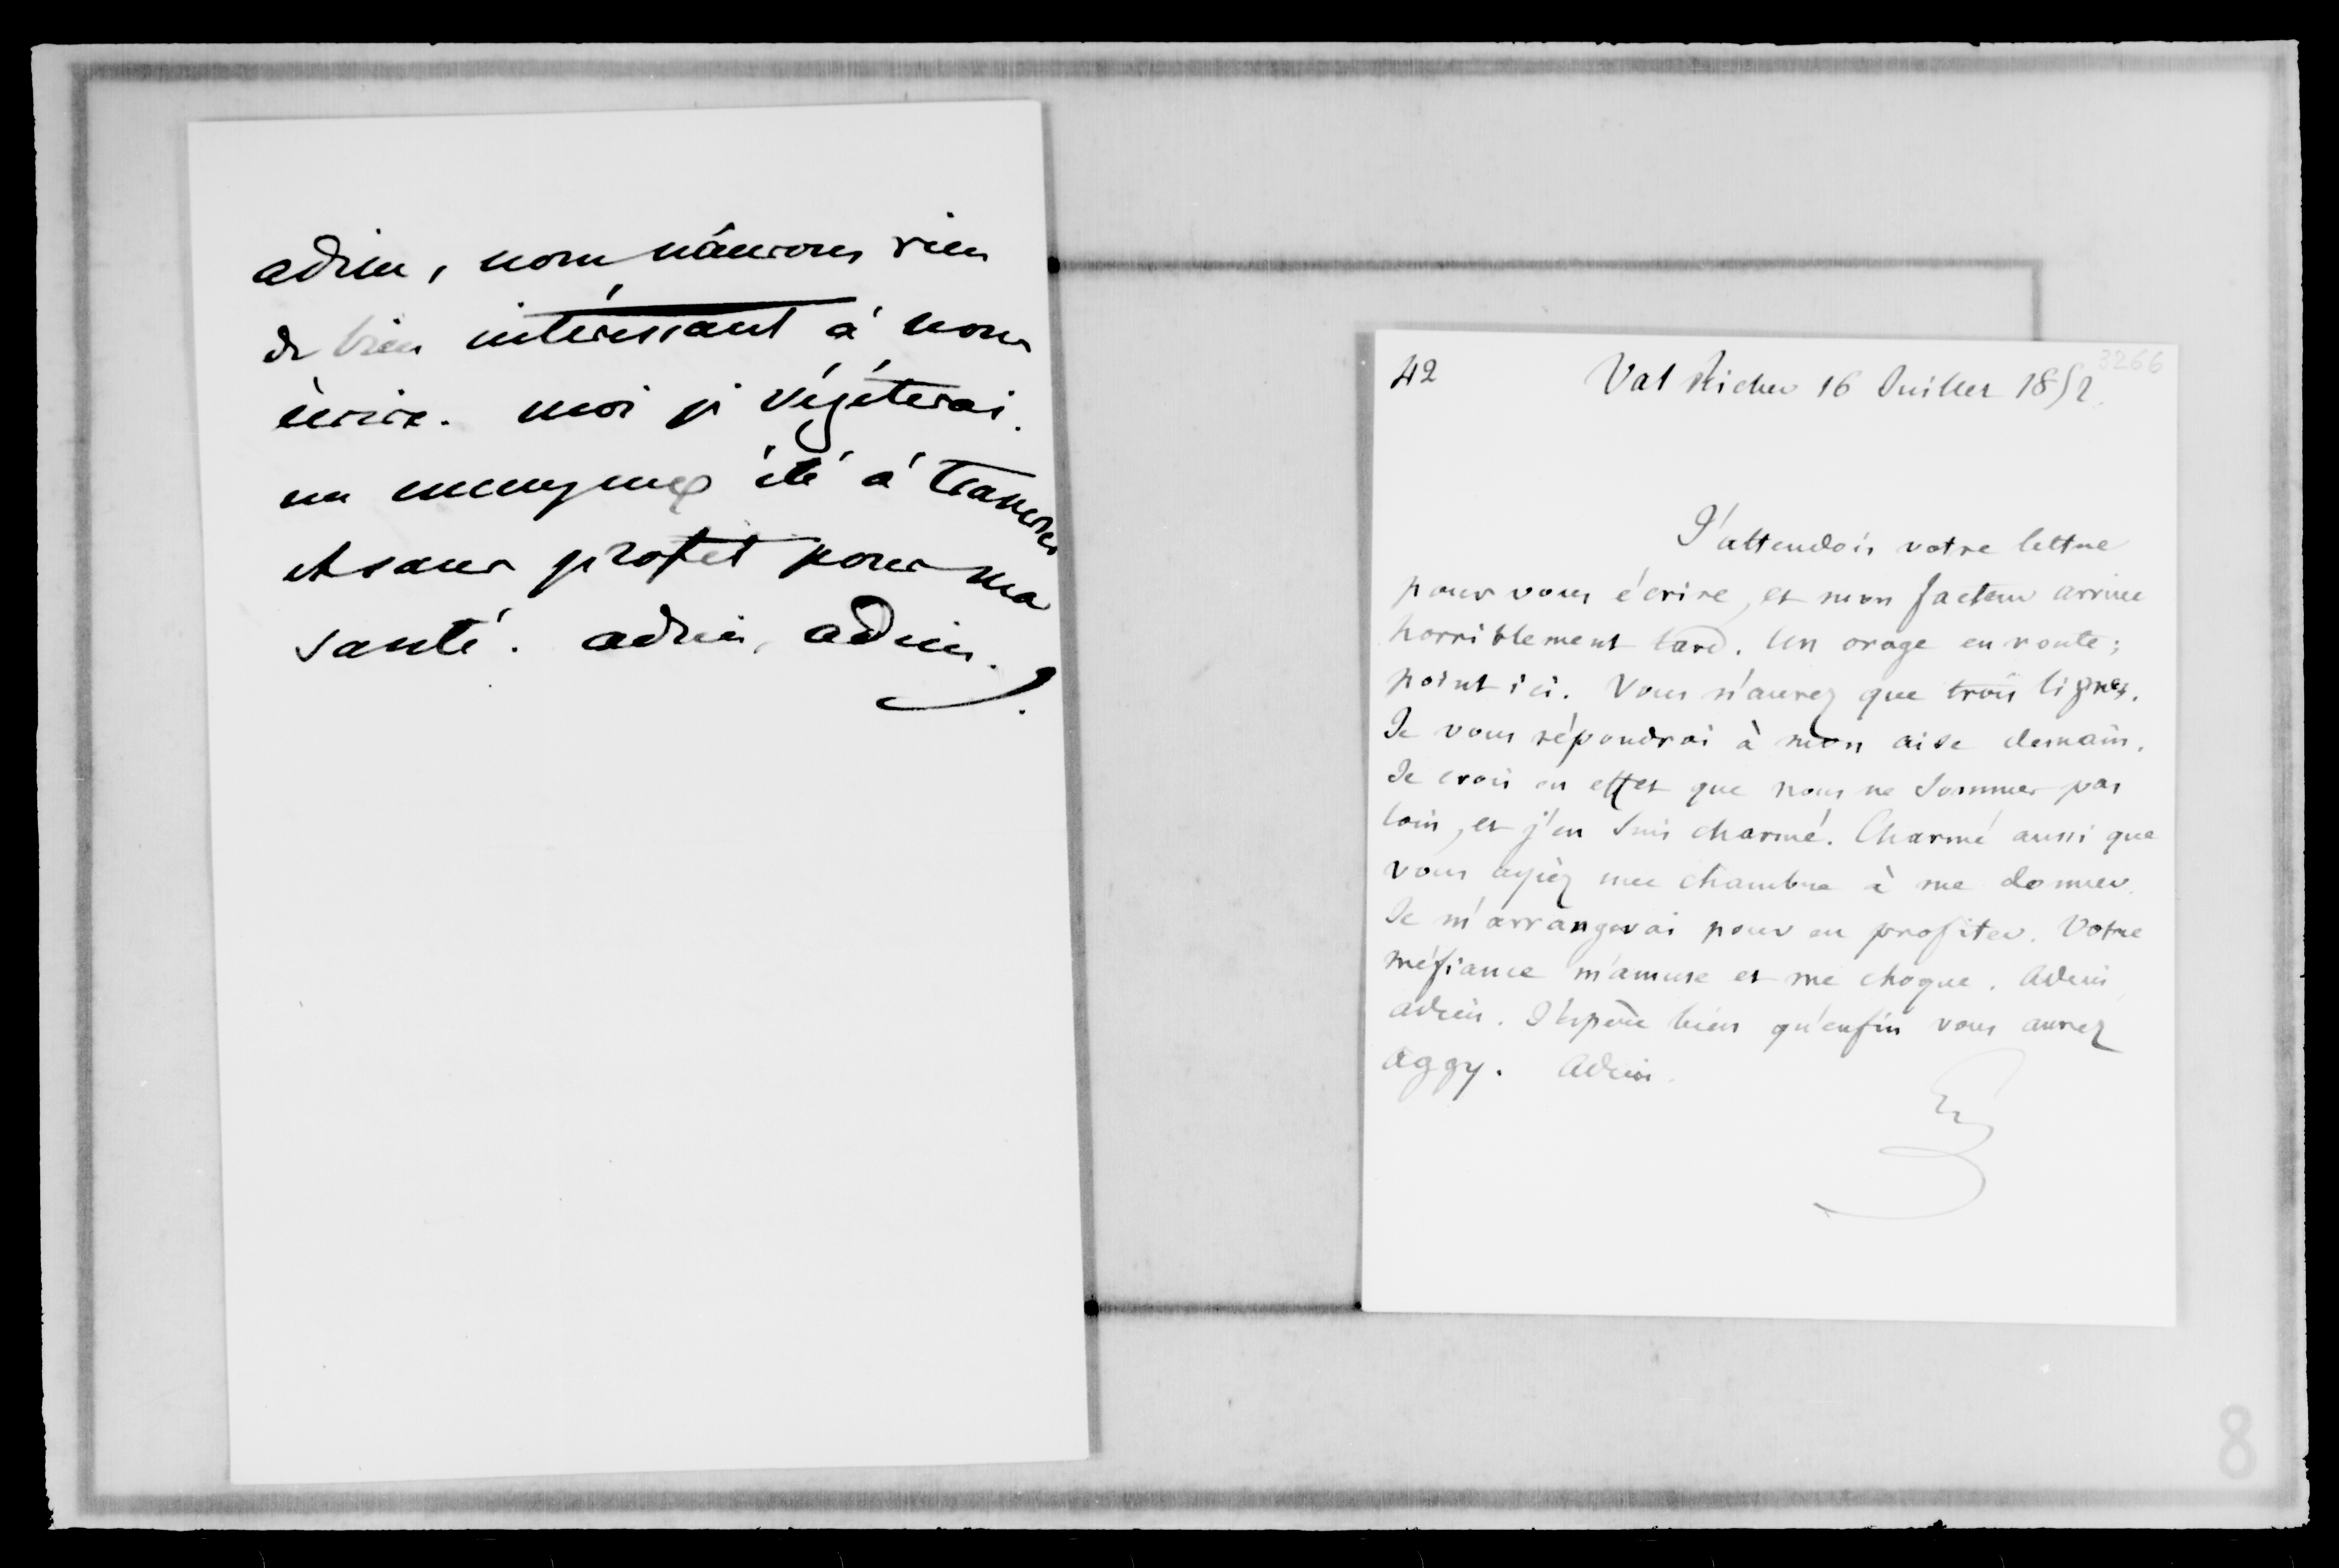 adieu, nous n'aurons rien
de bien intéressant à nous
écrire. moi je végéterai.
un ennuyeux été à traverser
et sans profit pour ma
santé. adieu, adieu.
3266
42 Val Richer 16 Juillet 1852.
J'attendois votre lettre
pour vous écrire, et mon facteur arrive
horriblement tard. Un orage en route;
point ici. Vous n'aurez que trois lignes.
Je vous répondrai à mon aise demain.
Je crois en effet que nous ne sommes pas
loin, et j'en suis charmé. Charmé aussi que
vous ayiez une chambre à me donner.
Je m'arrangerai pour en profiter. Votre
méfiance m'amuse et me choque. Adieu
adieu. J'espère bien qu'enfin vous aurez
Aggy. Adieu.
8